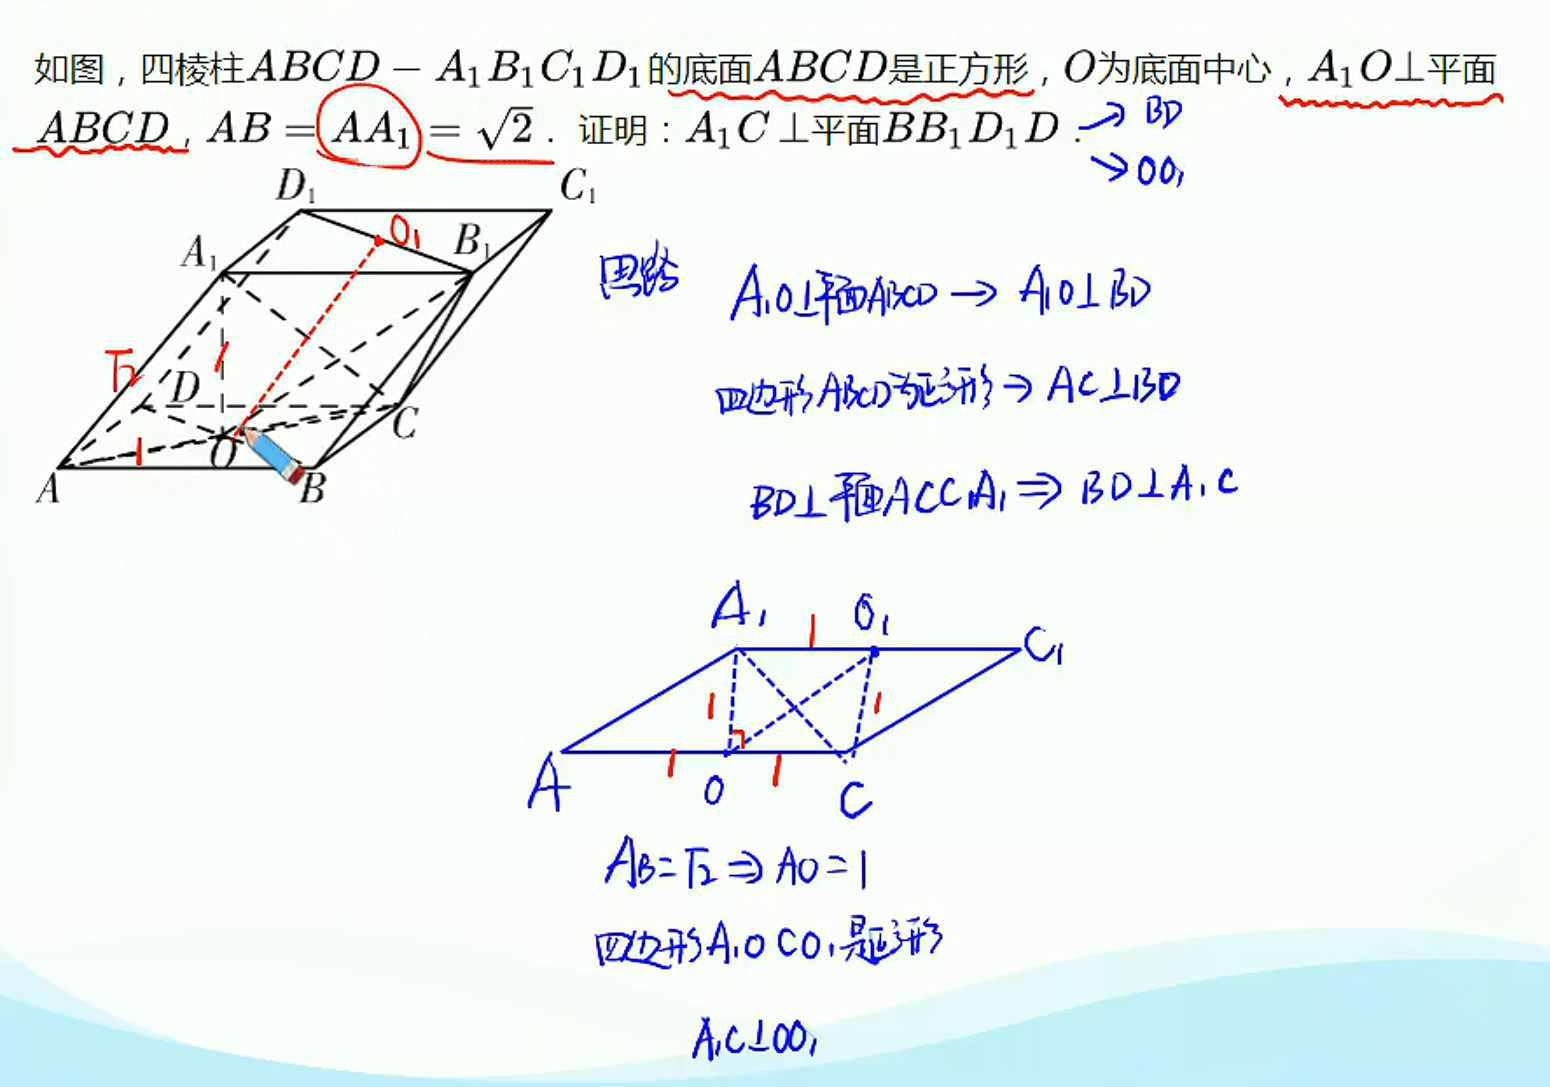 如图，四棱柱ABCD − A₁B₁C₁D₁的底面ABCD是正方形，O为底面中心，A₁O⊥平面
ABCD，AB = AA₁ = √2．证明：A₁C⊥平面BB₁D₁D．
→ BD
→ OO₁
D₁ C₁
O₁
A₁ B₁
√2 1
D
C
1 O
A B
思路
A₁O⊥平面ABCD → A₁O⊥BD
四边形ABCD为正方形 ⇒ AC⊥BD
BD⊥平面ACC₁A₁ ⇒ BD⊥A₁C
A₁ 1 O₁ C₁
1 1
A 1 O 1 C
AB=√2 ⇒ AO=1
四边形A₁OCO₁是正方形
A₁C⊥OO₁